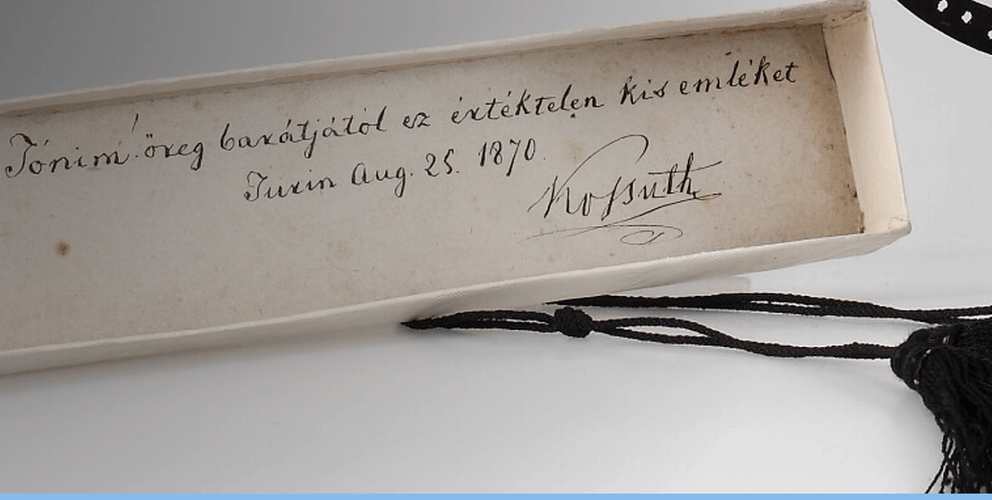 Tónim! öreg barátjától ez értéktelen kis emléket
Turin Aug. 25. 1870.
Kossuth